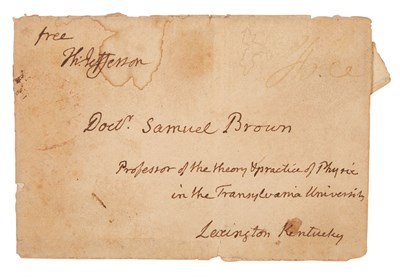 free
Th: Jefferson
free
Doct.r Samuel Brown
Professor of the theory & practice of Physic
in the Transylvania University
Lexington Kentucky